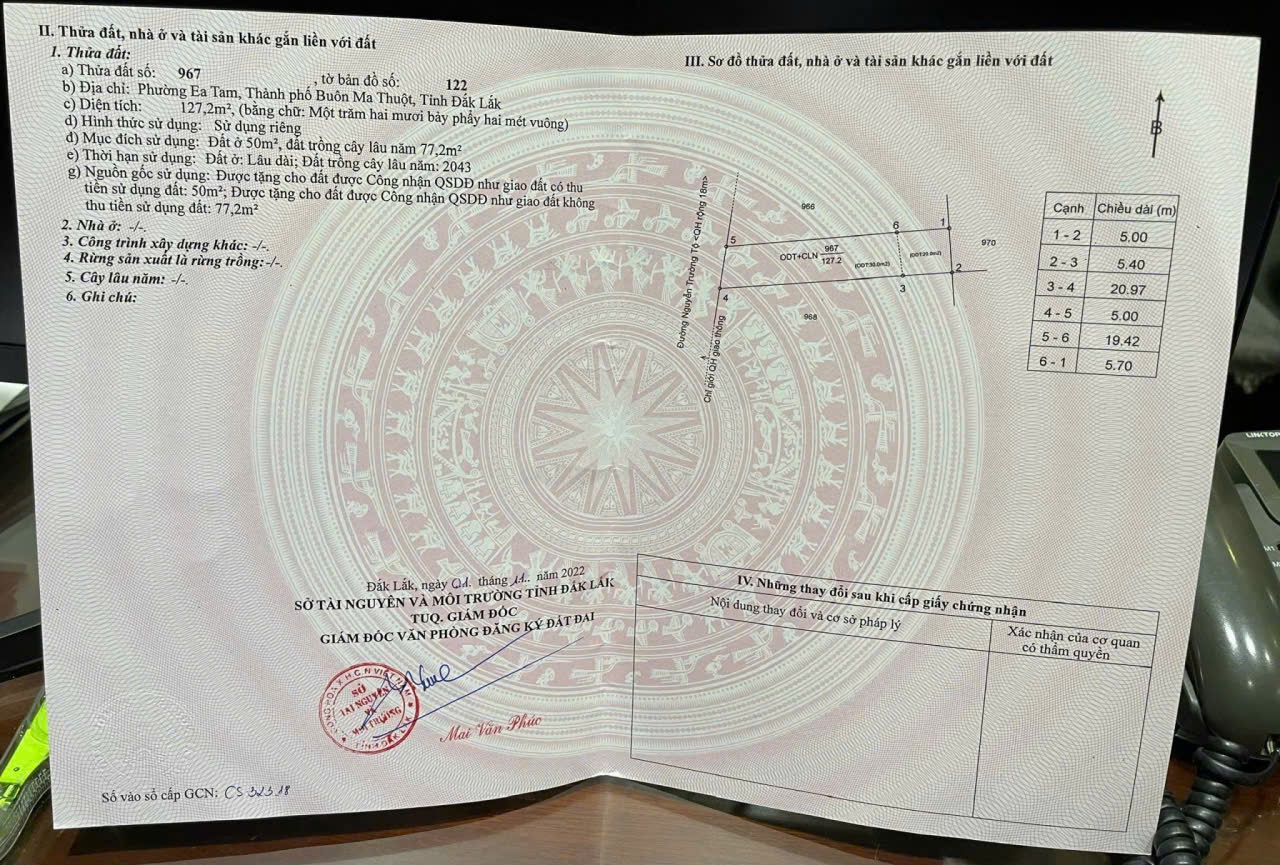 II. Thửa đất, nhà ở và tài sản khác gắn liền với đất
1. Thửa đất:
a) Thửa đất số: 967 , tờ bản đồ số: 122
b) Địa chỉ: Phường Ea Tam, Thành phố Buôn Ma Thuột, Tỉnh Đắk Lắk
c) Diện tích: 127,2m², (bằng chữ: Một trăm hai mươi bảy phẩy hai mét vuông)
d) Hình thức sử dụng: Sử dụng riêng
đ) Mục đích sử dụng: Đất ở 50m², đất trồng cây lâu năm 77,2m²
e) Thời hạn sử dụng: Đất ở: Lâu dài; Đất trồng cây lâu năm: 2043
g) Nguồn gốc sử dụng: Được tặng cho đất được Công nhận QSDĐ như giao đất có thu
tiền sử dụng đất: 50m²; Được tặng cho đất được Công nhận QSDĐ như giao đất không
thu tiền sử dụng đất: 77,2m²
2. Nhà ở: -/-.
3. Công trình xây dựng khác: -/-.
4. Rừng sản xuất là rừng trồng: -/-.
5. Cây lâu năm: -/-.
6. Ghi chú:
Đắk Lắk, ngày 01. tháng 11.. năm 2022
SỞ TÀI NGUYÊN VÀ MÔI TRƯỜNG TỈNH ĐẮK LẮK
TUQ. GIÁM ĐỐC
GIÁM ĐỐC VĂN PHÒNG ĐĂNG KÝ ĐẤT ĐAI
CỘNG HÒA X.H.C.N VIỆT NAM
SỞ
TÀI NGUYÊN
VÀ
MÔI TRƯỜNG
TỈNH ĐẮK LẮK
Mai Văn Phúc
Số vào sổ cấp GCN: CS 32318
III. Sơ đồ thửa đất, nhà ở và tài sản khác gắn liền với đất
B
Đường Nguyễn Trường Tộ <QH rộng 18m>
Chỉ giới QH giao thông
966
6
1
5
970
ODT+CLN 967
127.2
(ODT:30.0m2)
(ODT:20.0m2)
2
4
3
968
Cạnh Chiều dài (m)
1 - 2 5.00
2 - 3 5.40
3 - 4 20.97
4 - 5 5.00
5 - 6 19.42
6 - 1 5.70
IV. Những thay đổi sau khi cấp giấy chứng nhận
Nội dung thay đổi và cơ sở pháp lý
Xác nhận của cơ quan
có thẩm quyền